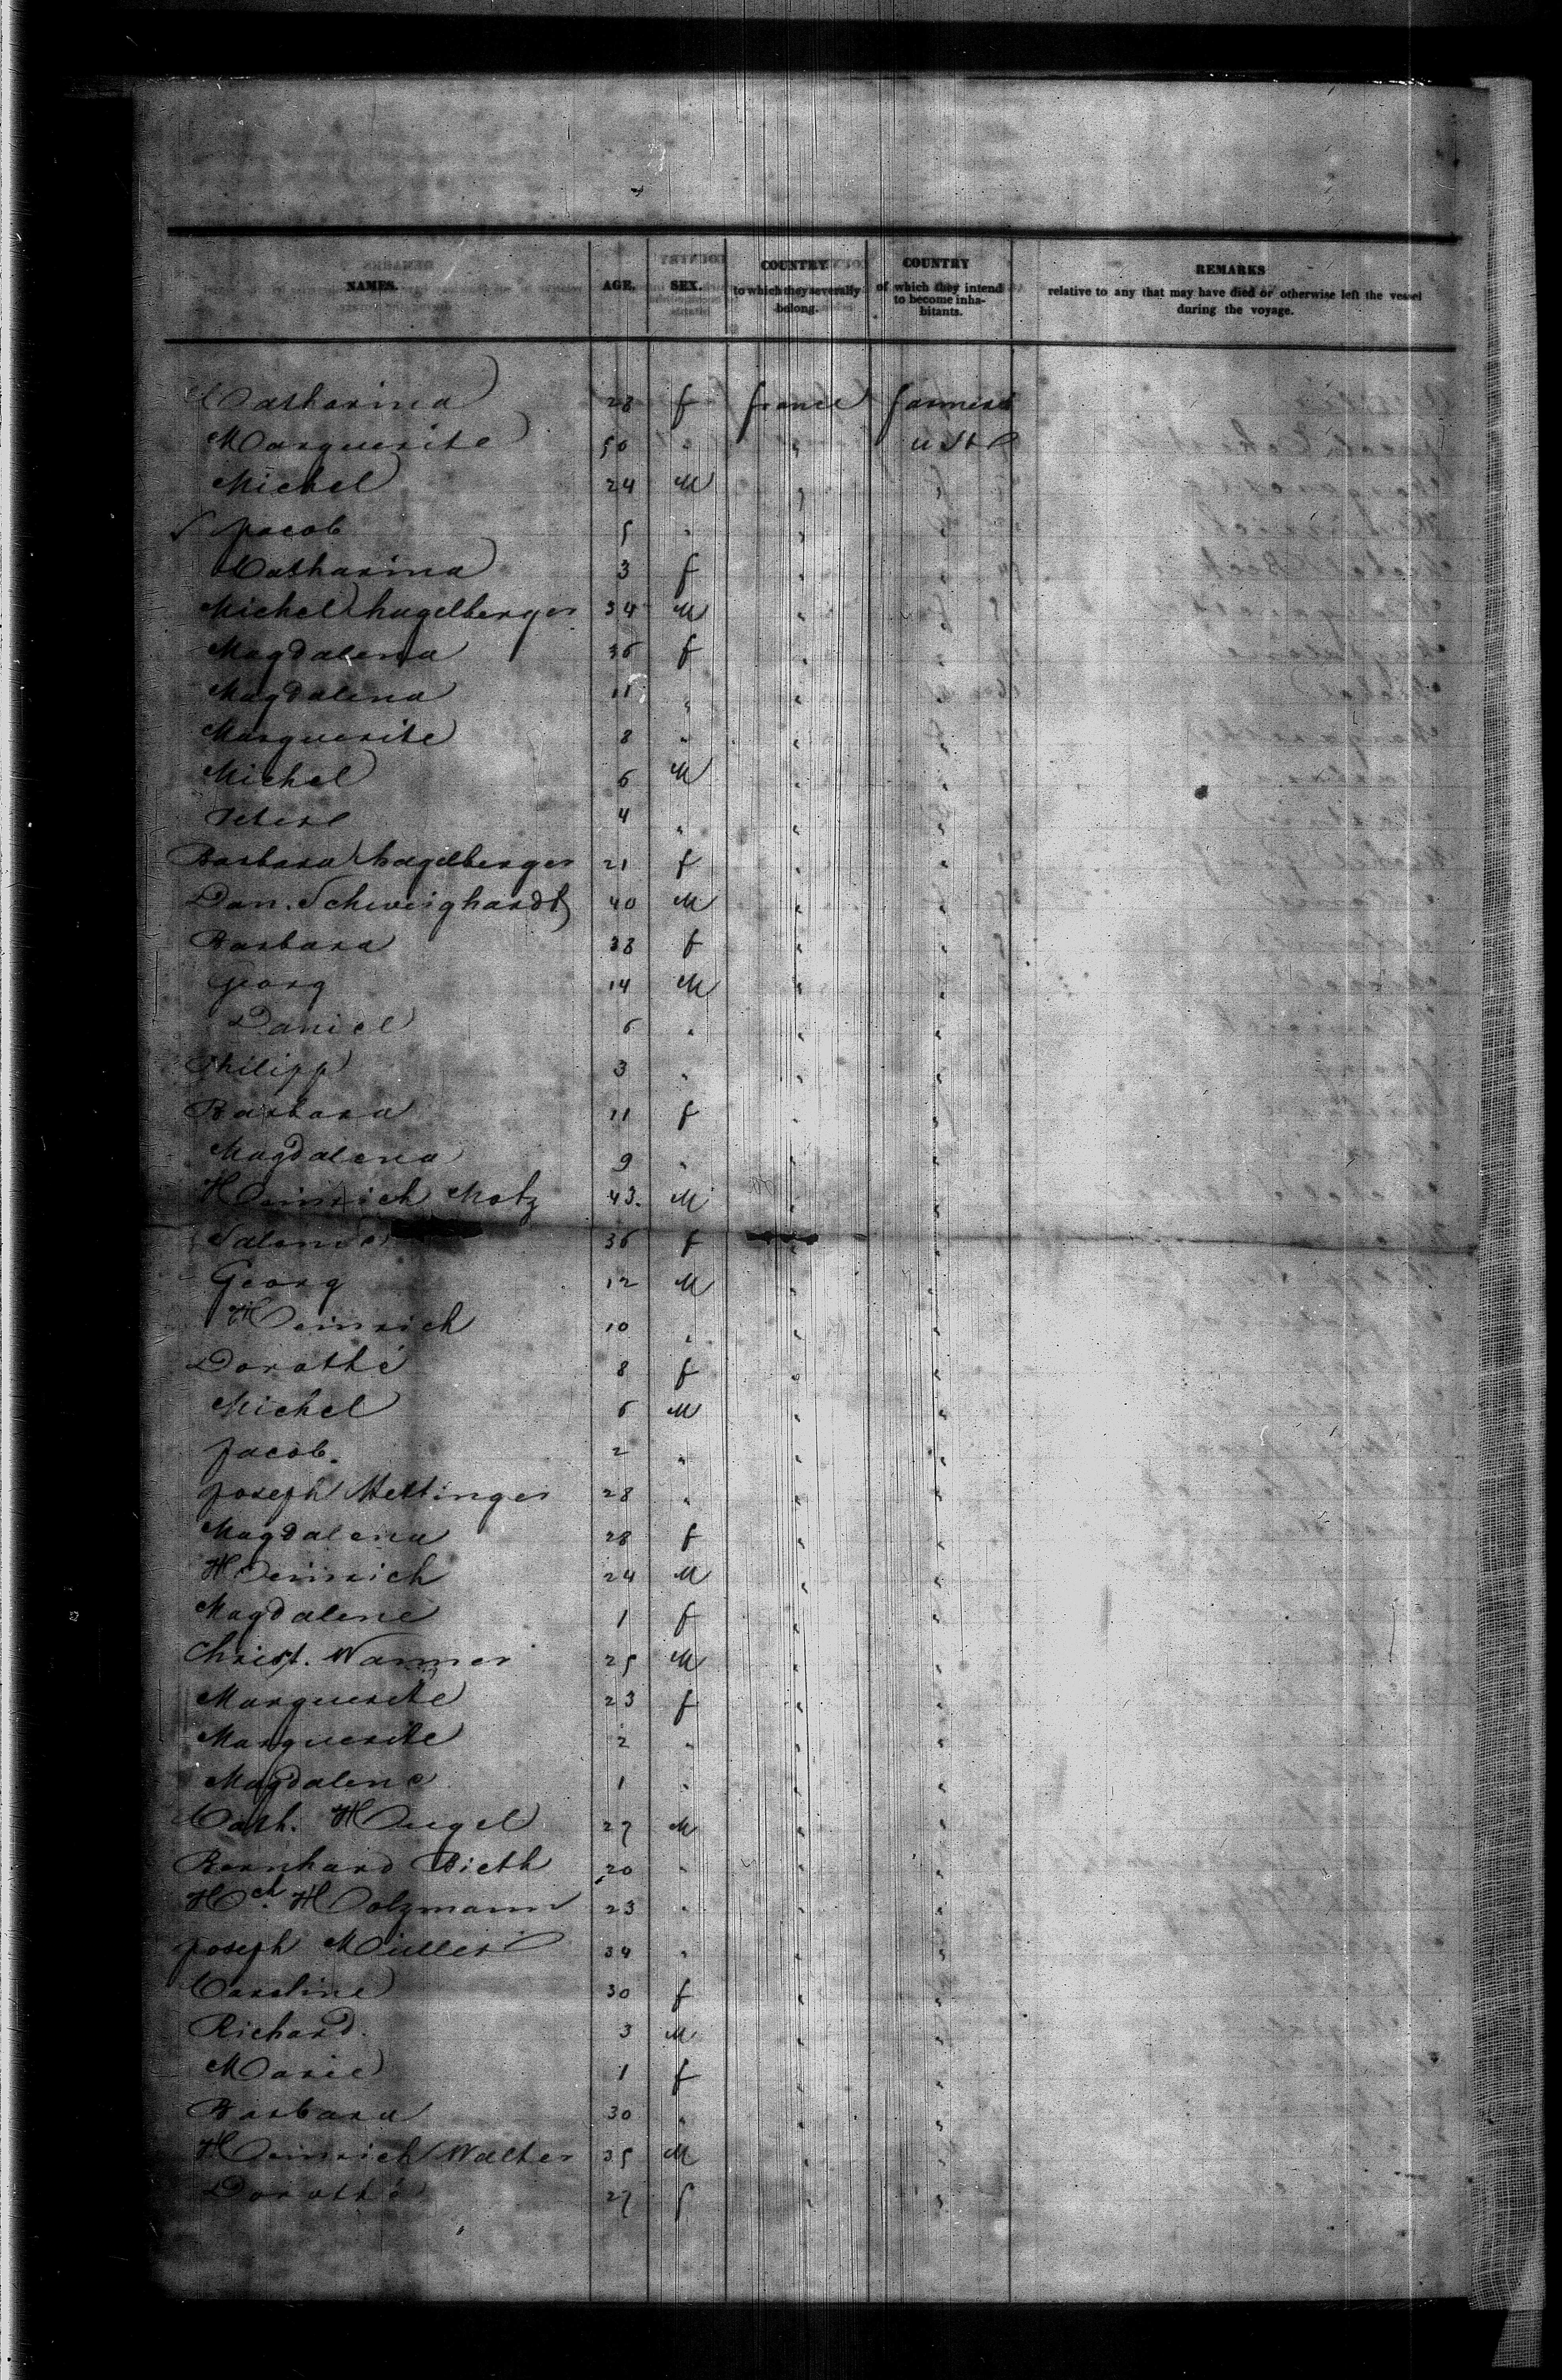 NAMES. AGE. SEX. COUNTRY to which they severally belong. COUNTRY of which they intend to become inhabitants. REMARKS relative to any that may have died or otherwise left the vessel during the voyage.
Catharina 28 f france farmers
Marguerite 50 " " u St
Michel 24 M " "
Jacob 5 " " "
Catharina 3 f " "
Michel hagelberger 34 M " "
Magdalena 36 f " "
Magdalena 11 " " "
Marguerite 8 " " "
Michel 6 M " "
4 " " "
Barbara hagelberger 21 f " "
Dan. Schweighardt 40 M " "
Barbara 38 f " "
Georg 14 M " "
Daniel 6 " " "
Philipp 3 " " "
Barbara 11 f " "
Magdalena 9 " " "
Heinrich Motz 43. M " "
Salomé 36 f " "
Georg 12 M " "
Heinrich 10 " " "
Dorothé 8 f " "
Michel 6 M " "
Jacob. 2 " " "
Joseph Mettinger 28 " " "
Magdalena 28 f " "
Heinrich 24 M " "
Magdalene 1 f " "
Christ. Wanner 25 M " "
Marguerite 23 f " "
Marguerite 2 " " "
Magdalene 1 " " "
Cath. Hugel 27 M " "
Bernhard Bieth 20 " " "
Hch. Holzmann 23 " " "
Joseph Müller 34 " " "
Caroline 30 f " "
Richard. 3 M " "
Marie 1 f " "
Barbara 30 " " "
Heinrich Walter 35 M " "
Dorothé 27 f " "